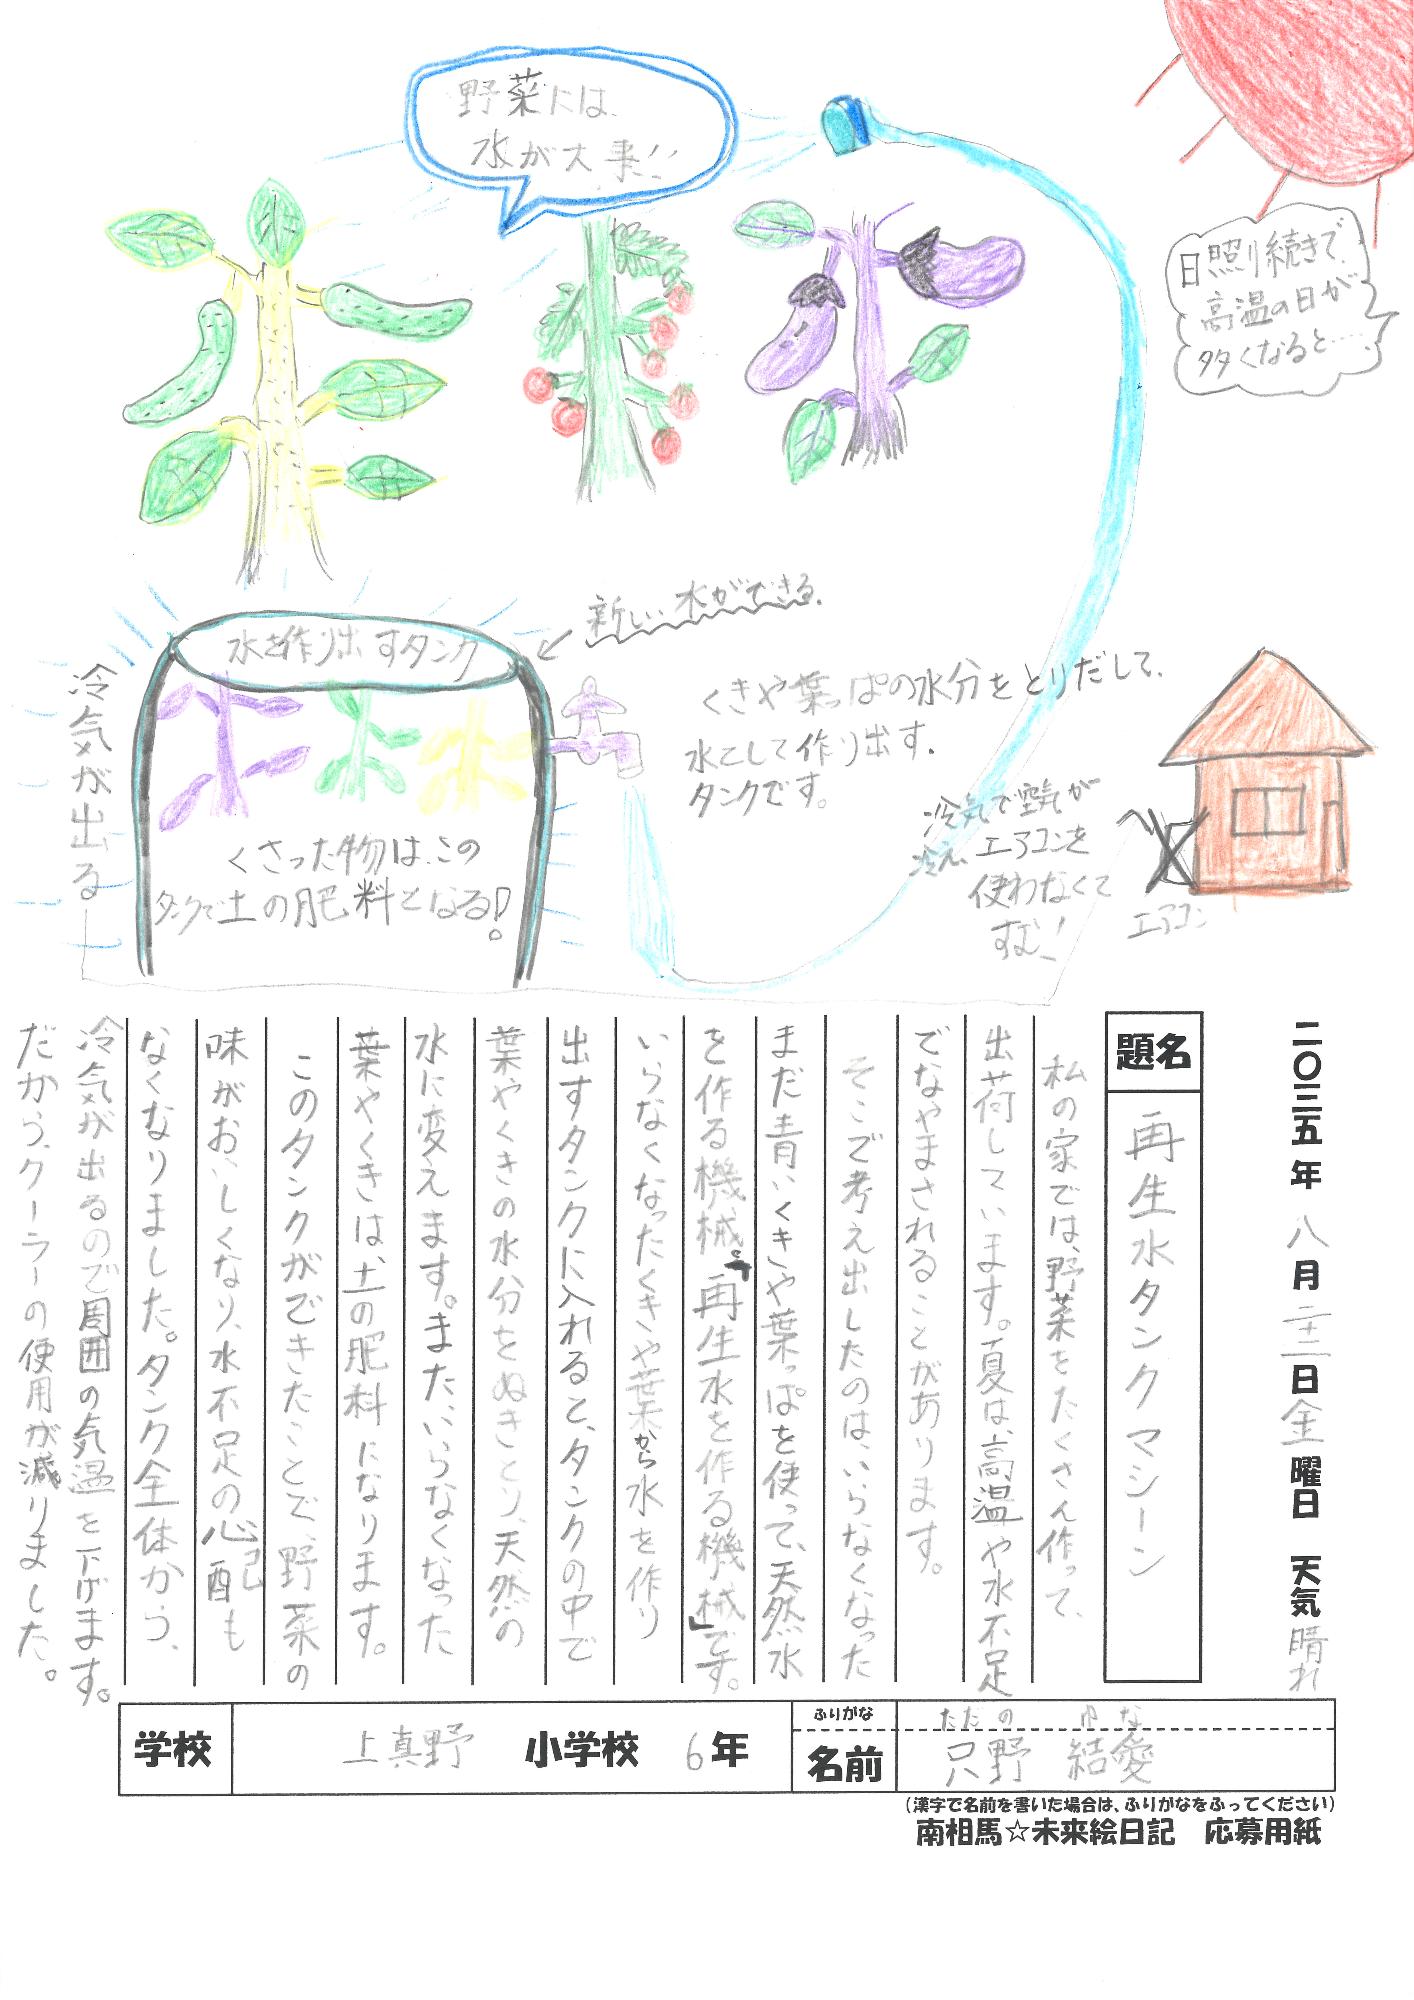 野菜には、
水が大事!!
日照り続きで、
高温の日が
多くなると…。
新しい水ができる。
水を作り出すタンク
冷気が出る
くさった物は、この
タンクで土の肥料となる!
くきや葉っぱの水分をとりだして、
水にして作り出す。
タンクです。
冷気で空気が
冷え、エアコンを
使わなくて
すむ!
エアコン
二〇三五年 八月二十二日金曜日 天気 晴れ
題名 再生水タンクマシーン
私の家では、野菜をたくさん作って、
出荷しています。夏は、高温や水不足
でなやまされることがあります。
そこで考え出したのは、いらなくなった
まだ青いくきや葉っぱを使って、天然水
を作る機械。「再生水を作る機械」です。
いらなくなったくきや葉から水を作り
出すタンクに入れると、タンクの中で
葉やくきの水分をぬきとり、天然の
水に変えます。また、いらなくなった
葉やくきは、土の肥料になります。
このタンクができたことで、野菜の
味がおいしくなり、水不足の心配も
なくなりました。タンク全体から、
冷気が出るので周囲の気温を下げます。
だから、クーラーの使用が減りました。
学校 上真野 小学校 6年
ふりがな ただの ゆな
名前 只野 結愛
(漢字で名前を書いた場合は、ふりがなをふってください)
南相馬☆未来絵日記 応募用紙